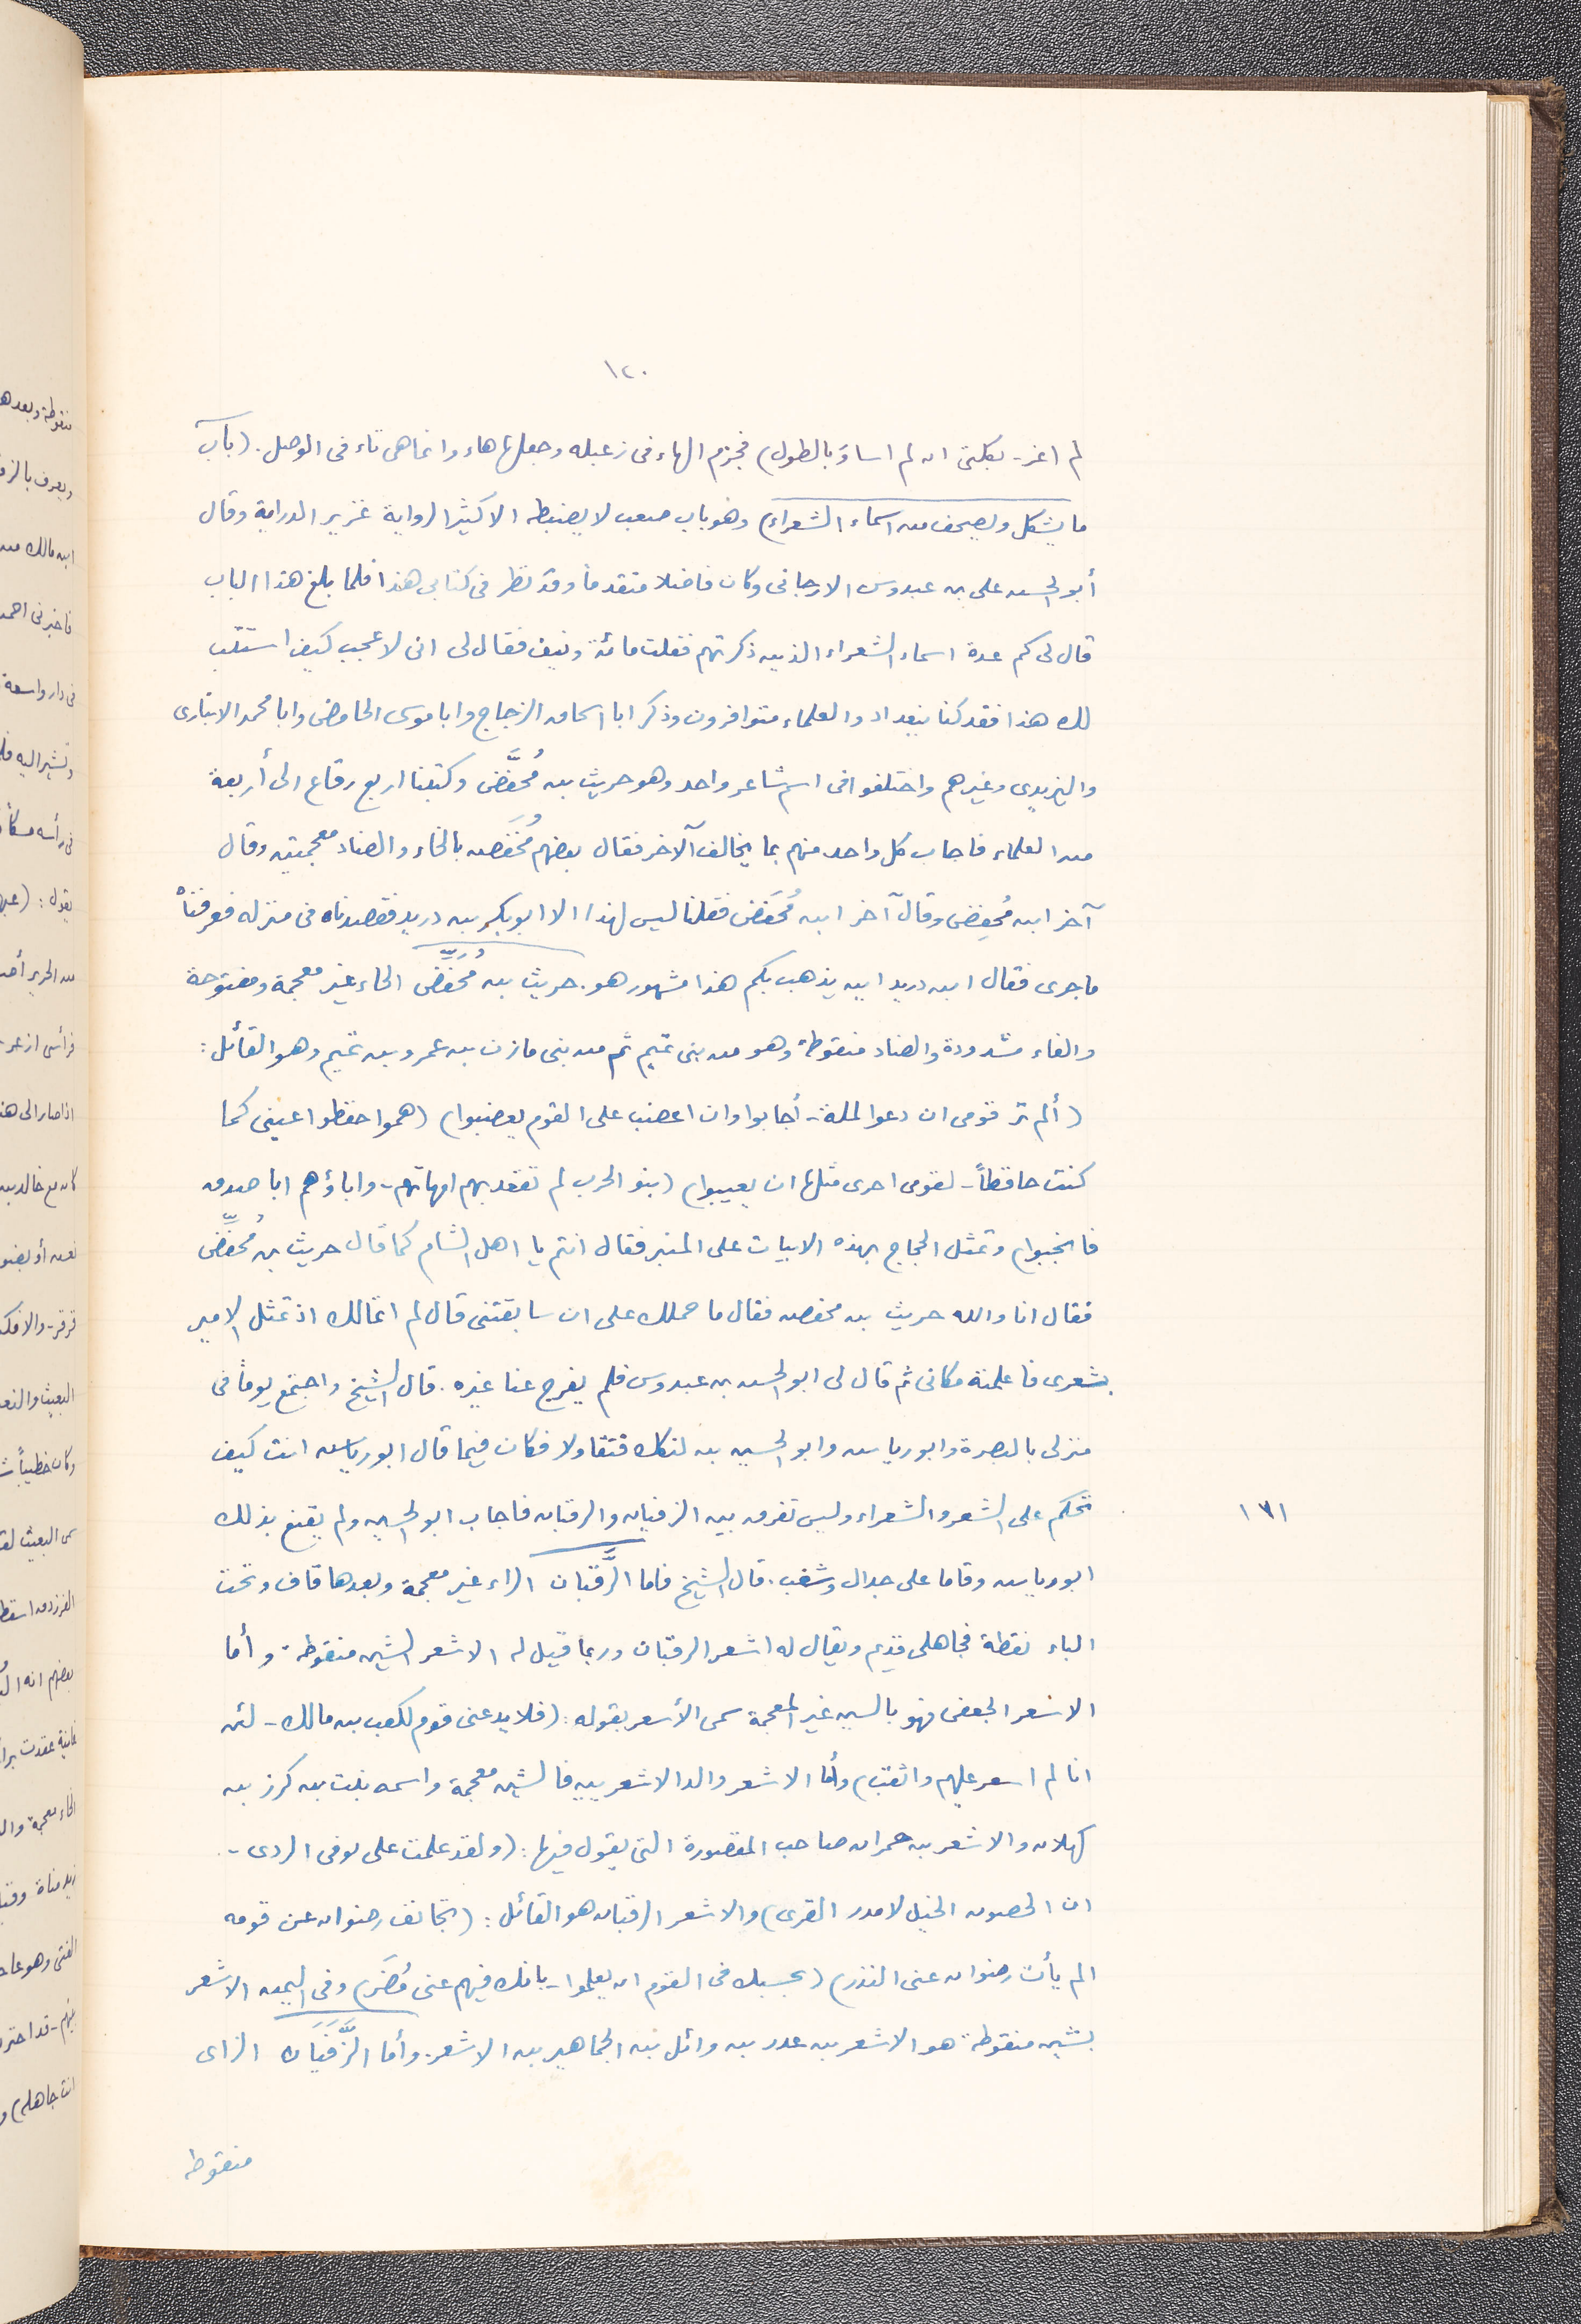 ١٢٠
لم اغز - بكلتى ان لم اساوَ بالطول) فجزم الهاء فى زعبله وجعلها هاء وانما هى تاء فى الوصل. (باب
ما يشكل ويصحف من اسماء الشعراء) وهو باب صعب لا يضبطه الا كثير الرواية غزير الدراية وقال
أبو الحسن على بن عبدوس الارجانى وكان فاضلا متقدماً وقد نظر فى كتابى هذا فلما بلغ هذا الباب
قال لى كم عدة اسماء الشعراء الذين ذكرتهم فقلت مائة ونيف فقال لى انى لاعجب كيف استتب
لك هذا فقد كنا ببغداد والعلماء متوافرون وذكر ابا اسحاق الزجاج وابا موسى الحامض وابا محمد الانبارى
واليزيدى وغيرهم واختلفوا فى اسم شاعر واحد وهو حريث بن مُحفَّض وكتبنا اربع رقاع الى أربعة
من العلماء فاجاب كل واحد منهم بما يخالف الآخر فقال بعضهم مُخَفض بالخاء والضاد معجمتين وقال
آخر ابن مُحفِض وقال آخر ابن مُحَفَض فقلنا ليس لهذا الا ابو بكر بن دريد فقصدناه فى منزله فعرفناه
ما جرى فقال ابن دريد اين يذهب بكم هذا مشهور هو. حريث بن مُحَفِّض الحاء غير معجمة ومفتوحة
والفاء مشدودة والضاد منقوطة وهو من بنى تميم ثم من بنى مازن بن عمرو بن تميم وهو القائل:
(ألم تر قومى ان دعوا لملة - أجابوا وان اغضب على القوم يغضبوا) (هموا حفظوا عينى كما
كنت حافظاً - لقومى احرى مثلها ان يعيبوا) (بنو الحرب لم تقعد بهم امهاتهم - واباؤهم ابا صدق
فانجبوا) وتمثل الحجاج بهذه الابيات على المنبر فقال انتم يا اهل الشام كما قال حريث بن مُحفِّض
فقال انا والله حريث بن محفض فقال ما حملك على ان سابقتنى قال لم اتمالك اذ تمثل الامير
بشعرى فاعلمته مكانى ثم قال لى ابو الحسن بن عبدوس فلم يفرج عنا غيره. قال الشيخ واجتمع يوماً فى
منزلى بالبصرة وابو رياش وابو الحسين بن لنكك فتقاولا فكان فيما قال ابو رياش انت كيف
تحكم على الشعر والشعراء وليس تفرق بين الزفيان والرقبان فاجاب ابو الحسين ولم يقنع بذلك
١٧١
ابو رياش وقاما على جدال وشغب. قال الشيخ فاما الرَّقبَان الراء غير معجمة وبعدها قاف وتحت
الباء نقطة فجاهلى قديم ويقال له اشعر الرقبان وربما قيل له الاشعر الشين منقوطة. وأما
الاسعر الجعفى فهو بالسين غير المعجمة سمى الأسعر بقوله: (فلا يدعنى قوم لكعب بن مالك - لئن
انا لم اسعر عليهم واثقب) وأما الاشعر والد الاشعريين فالشين معجمة واسمه نبت بن كرز بن
كهلان والاشعر بن حمران صاحب المقصورة التى يقول فيها: (ولقد علمت على توقى الردى -
ان الحصون الخيل لا مدر القرى) والاشعر الرقبان هو القائل: (تجانف رضوان عن قومه
الم يأت رضوان عنى النذر) (بحسبك فى القوم ان يعلموا - بانك فيهم غنى مُضَر) وفى اليمن الاشعر
بشين منقوطة هو الاشعر بن عدر بن وائل بن الجماهير بن الاشعر. وأما الزَّفَيَان الزاى
منقوطه